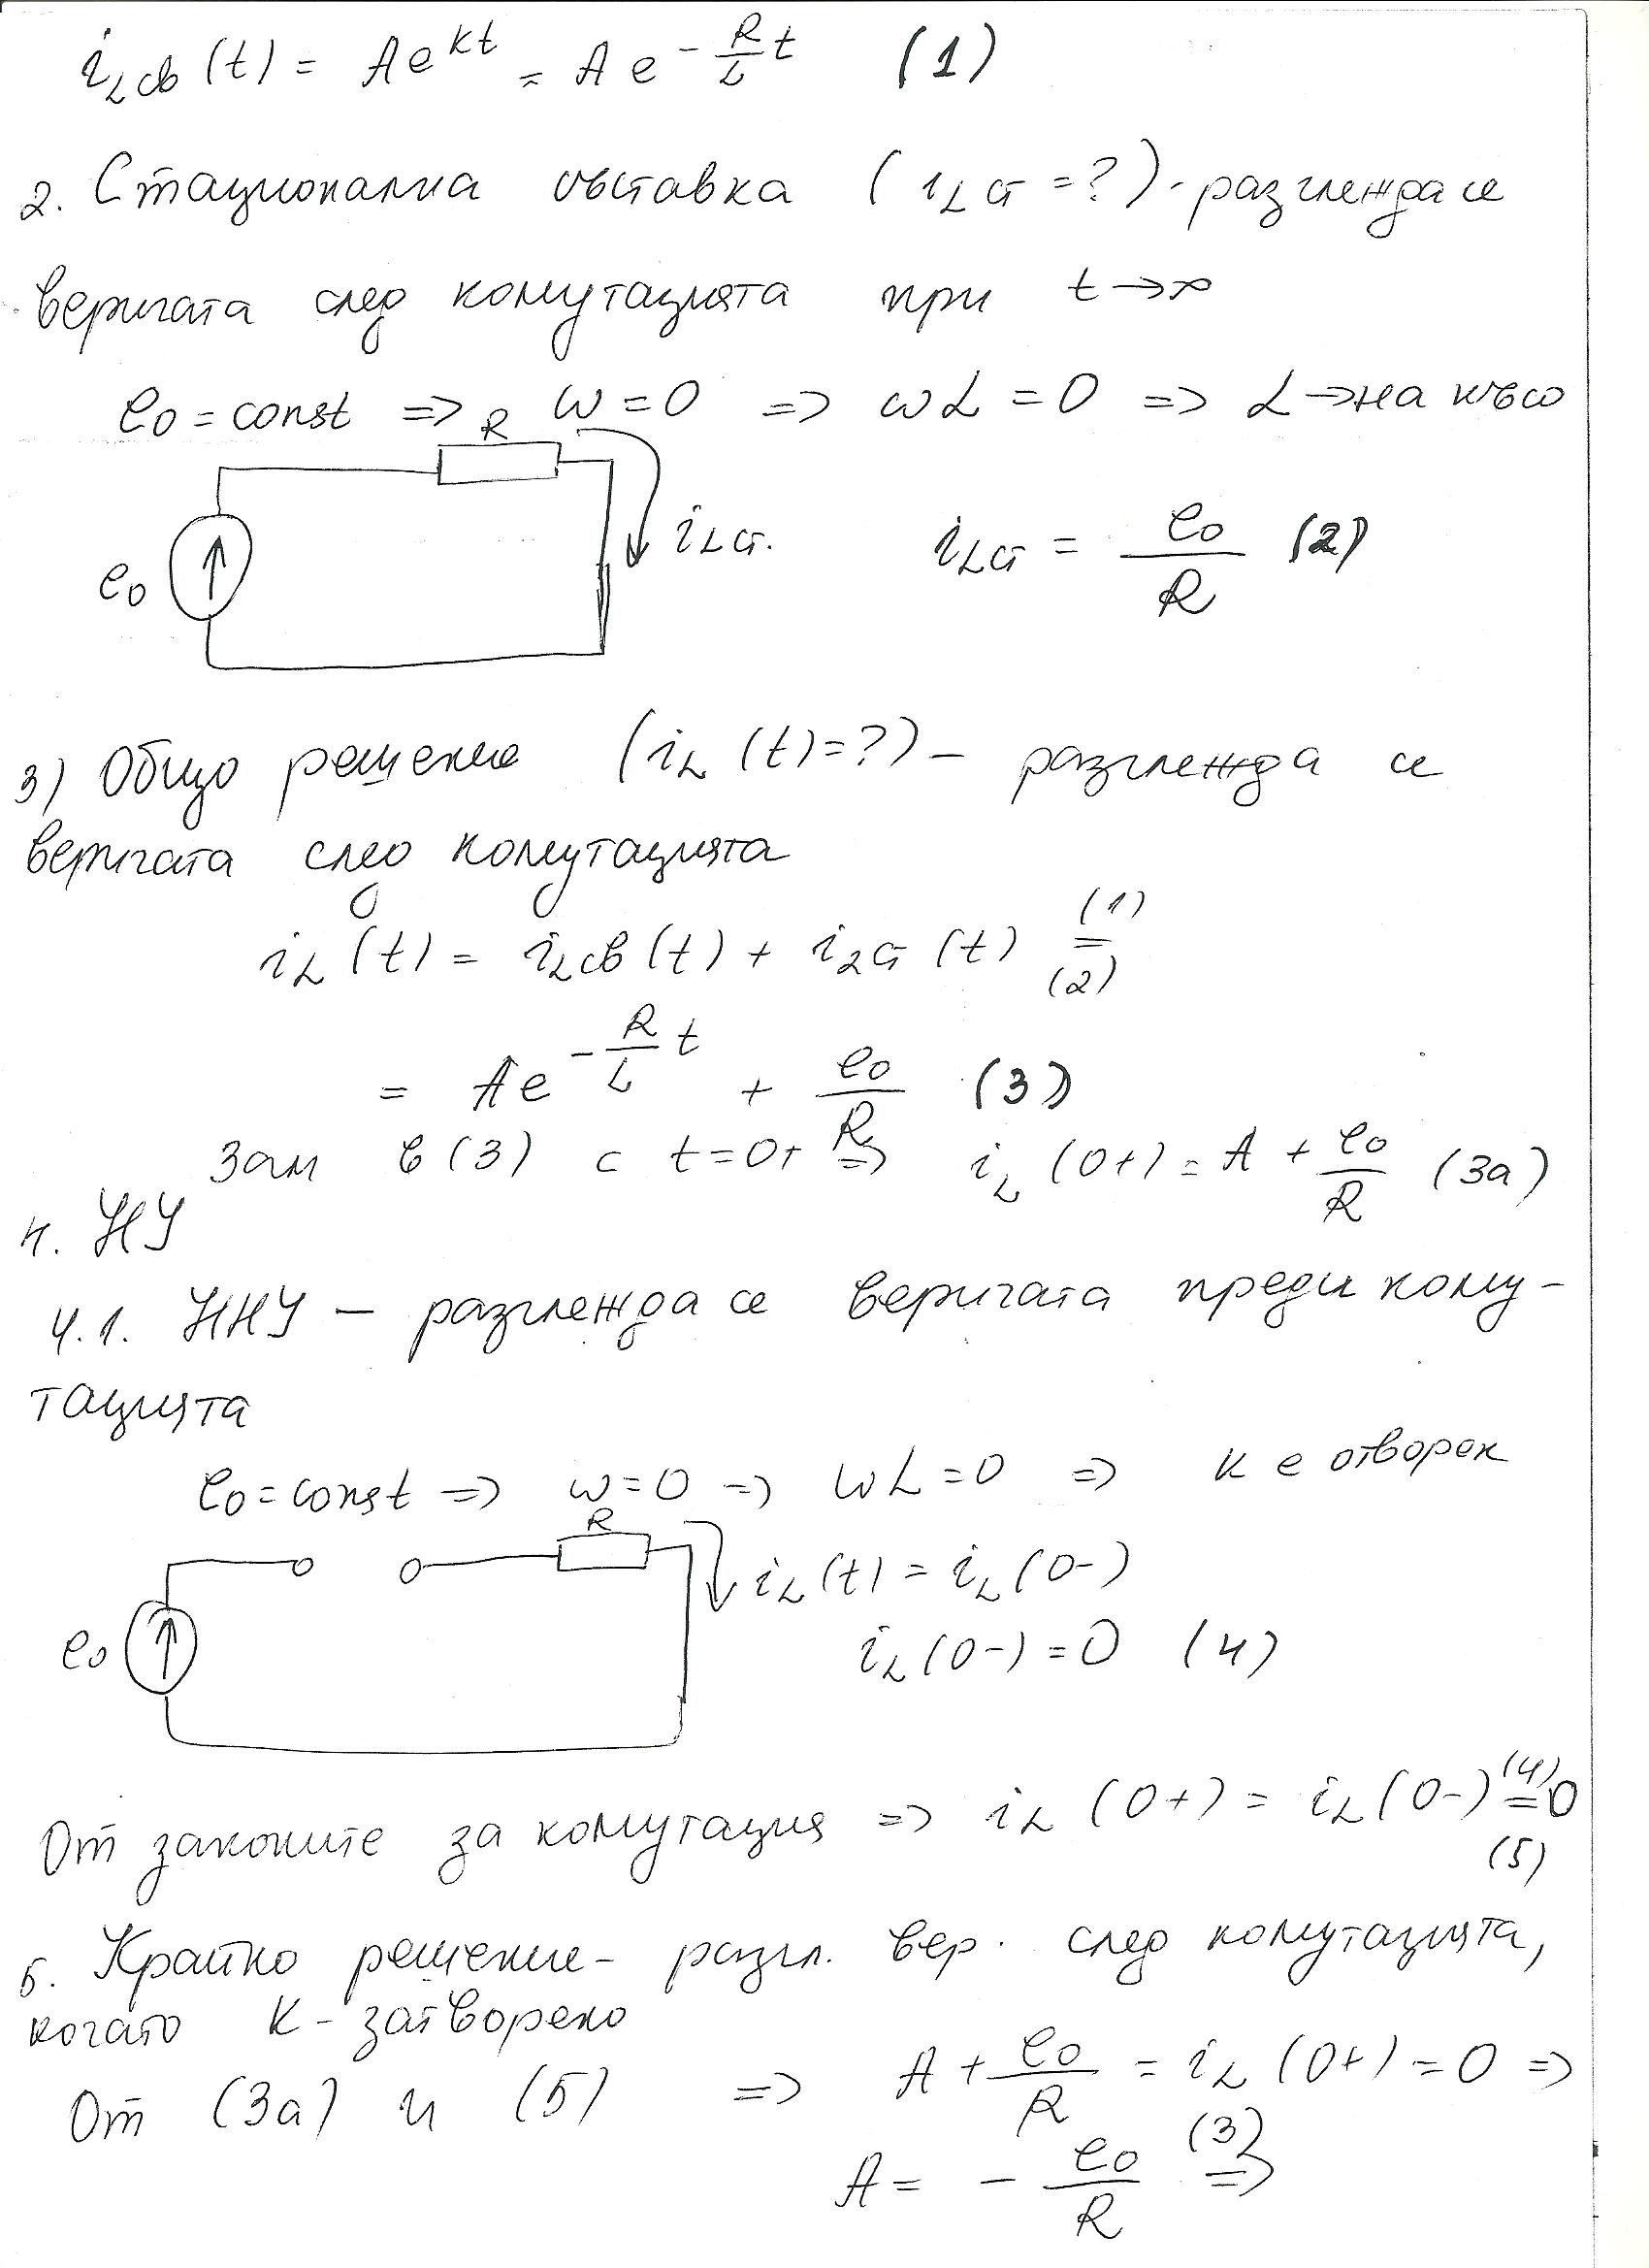 i_Lсв(t) = Ae^{kt} = Ae^{-\frac{R}{L}t} (1)
2. Стационална съставка (i_Lст = ?) - разглежда се
веригата след комутацията при t → ∞
e0 = const => ω = 0 => ωL = 0 => L → на късо
R
i_Lст. i_Lст = \frac{e0}{R} (2)
e0
3) Общо решение (i_L(t) = ?) – разглежда се
веригата след комутацията
i_L(t) = i_Lсв(t) + i_Lст(t) \overset{(1)}{\underset{(2)}{=}}
= Ae^{-\frac{R}{L}t} + \frac{e0}{R} (3)
Зам в (3) с t = 0+ => i_L(0+) = A + \frac{e0}{R} (3a)
4. НУ
4.1. ННУ – разглежда се веригата преди кому-
тацията
e0 = const => ω = 0 => ωL = 0 => К е отворен
R
i_L(t) = i_L(0-)
e0 i_L(0-) = 0 (4)
От законите за комутация => i_L(0+) = i_L(0-) \overset{(4)}{=} 0
(5)
5. Крайно решение - разгл. вер. след комутацията,
когато К - затворено
От (3a) и (5) => A + \frac{e0}{R} = i_L(0+) = 0 =>
A = - \frac{e0}{R} \overset{(3)}{=>}